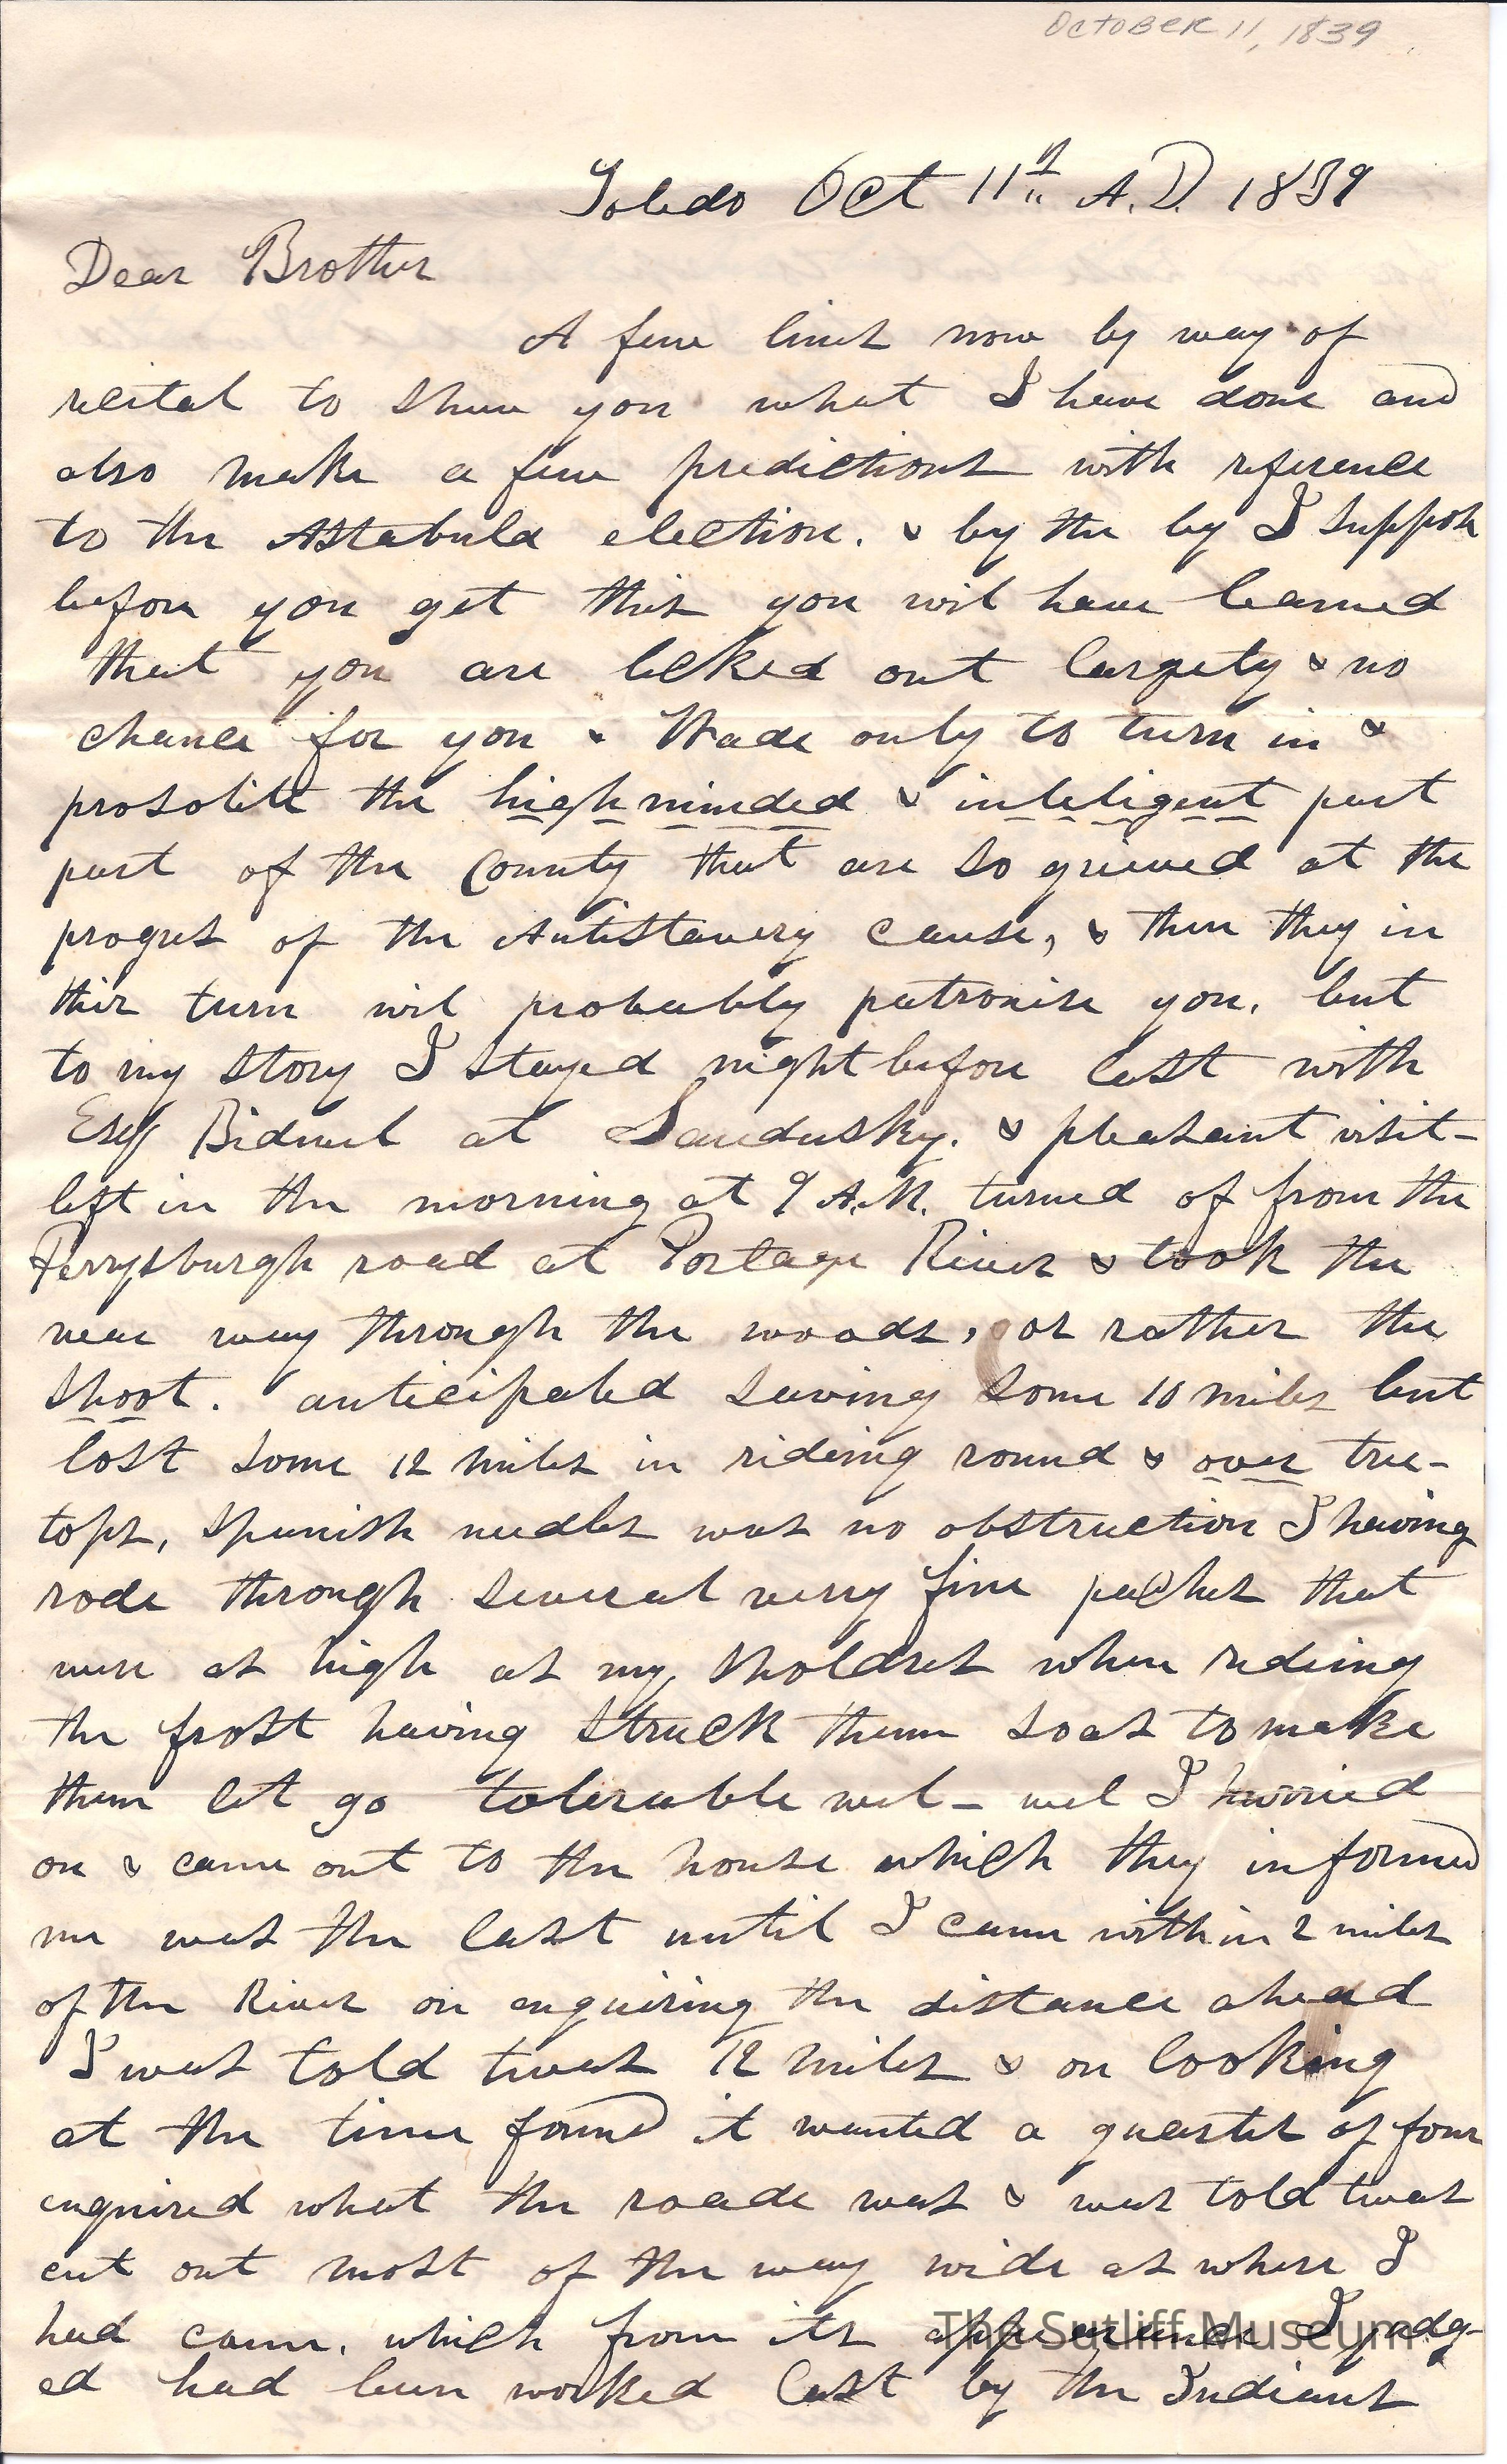 OCTOBER 11, 1839
Toledo Oct 11th A.D. 1839
Dear Brother
A few lines now by way of
recital to shew you what I have done and
also make a few predictions with reference
to the Astabula election. & by the by I suppose
before you get this you wil have learned
that you are licked out largely & no
chance for you & Wade only to turn in &
prosolite the high minded & inteligent part
part of the County that are so grieved at the
progres of the Antislavery cause, & then they in
thir turn wil probably patronise you. but
to my story I stayed night before last with
Esq Bidwel at Sandusky. & pleasant visit -
left in the morning at 9 A.M. turned of from the
Perrysburgh road at Portage River & took the
near way through the woods, or rather the
shoot. anticipated saving some 10 miles but
lost some 12 miles in rideing round & over tree-
tops, Spanish needles was no obstruction I having
rode through several verry fine paches that
were as high as my sholders when rideing
the frost having struck them so as to make
them let go tolerable wel - wel I hurried
on & came out to the house which they informed
me was the last until I came within 2 miles
of the River on enquiring the distance ahead
I was told twas 12 miles & on looking
at the time found it wanted a quarter of four
enquired what the roade was & was told twas
cut out most of the way wide as where I
had came. which from its appearance I judg-
ed had been worked last by the Indians
The Sutliff Museum